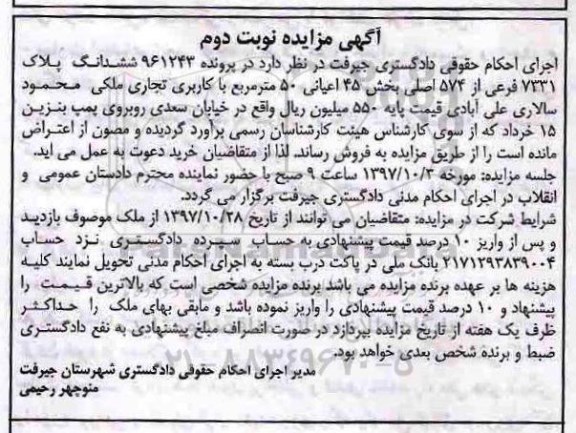 آگهی مزایده نوبت دوم
اجرای احکام حقوقی دادگستری جیرفت در نظر دارد در پرونده ۹۶۱۲۴۳ ششدانگ پلاک
۷۳۳۱ فرعی از ۵۷۴ اصلی بخش ۴۵ اعیانی ۵۰ مترمربع با کاربری تجاری ملکی محمود
سالاری علی آبادی قیمت پایه ۵۵۰ میلیون ریال واقع در خیابان سعدی روبروی پمپ بنزین
۱۵ خرداد که از سوی کارشناس هیئت کارشناسان رسمی برآورد گردیده و مصون از اعتراض
مانده است را از طریق مزایده به فروش رساند. لذا از متقاضیان خرید دعوت به عمل می اید.
جلسه مزایده: مورخه ۱۳۹۷/۱۰/۳ ساعت ۹ صبح با حضور نماینده محترم دادستان عمومی و
انقلاب در اجرای احکام مدنی دادگستری جیرفت برگزار می گردد.
شرایط شرکت در مزایده: متقاضیان می توانند از تاریخ ۱۳۹۷/۱۰/۲۸ از ملک موصوف بازدید
و پس از واریز ۱۰ درصد قیمت پیشنهادی به حساب سپرده دادگستری نزد حساب
۲۱۷۱۲۹۳۸۳۹۰۰۴ بانک ملی در پاکت درب بسته به اجرای احکام مدنی تحویل نمایند کلیه
هزینه ها بر عهده برنده مزایده می باشد برنده مزایده شخصی است که بالاترین قیمت را
پیشنهاد و ۱۰ درصد قیمت پیشنهادی را واریز نموده باشد و مابقی بهای ملک را حداکثر
ظرف یک هفته از تاریخ مزایده بپردازد در صورت انصراف مبلغ پیشنهادی به نفع دادگستری
ضبط و برنده شخص بعدی خواهد بود.
مدیر اجرای احکام حقوقی دادگستری شهرستان جیرفت
منوچهر رحیمی